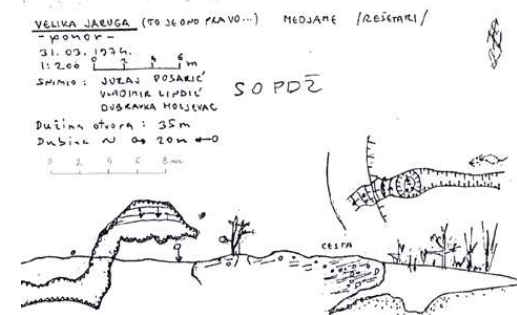 VELIKA JARUGA (TO JE ONO PRAVO...) MEDJAME /REŠETARI/
- ponor -
31. 03. 1974.
1:200 0 2 4 6 m
SNIMIO: JURAJ POSARIĆ
VLADIMIR LINDIĆ
DUBRAVKA MOLJEVAC
SOPDŽ
Dužina otvora: 35m
Dubina ~ 20m
0 2 4 6 8m
CESTA